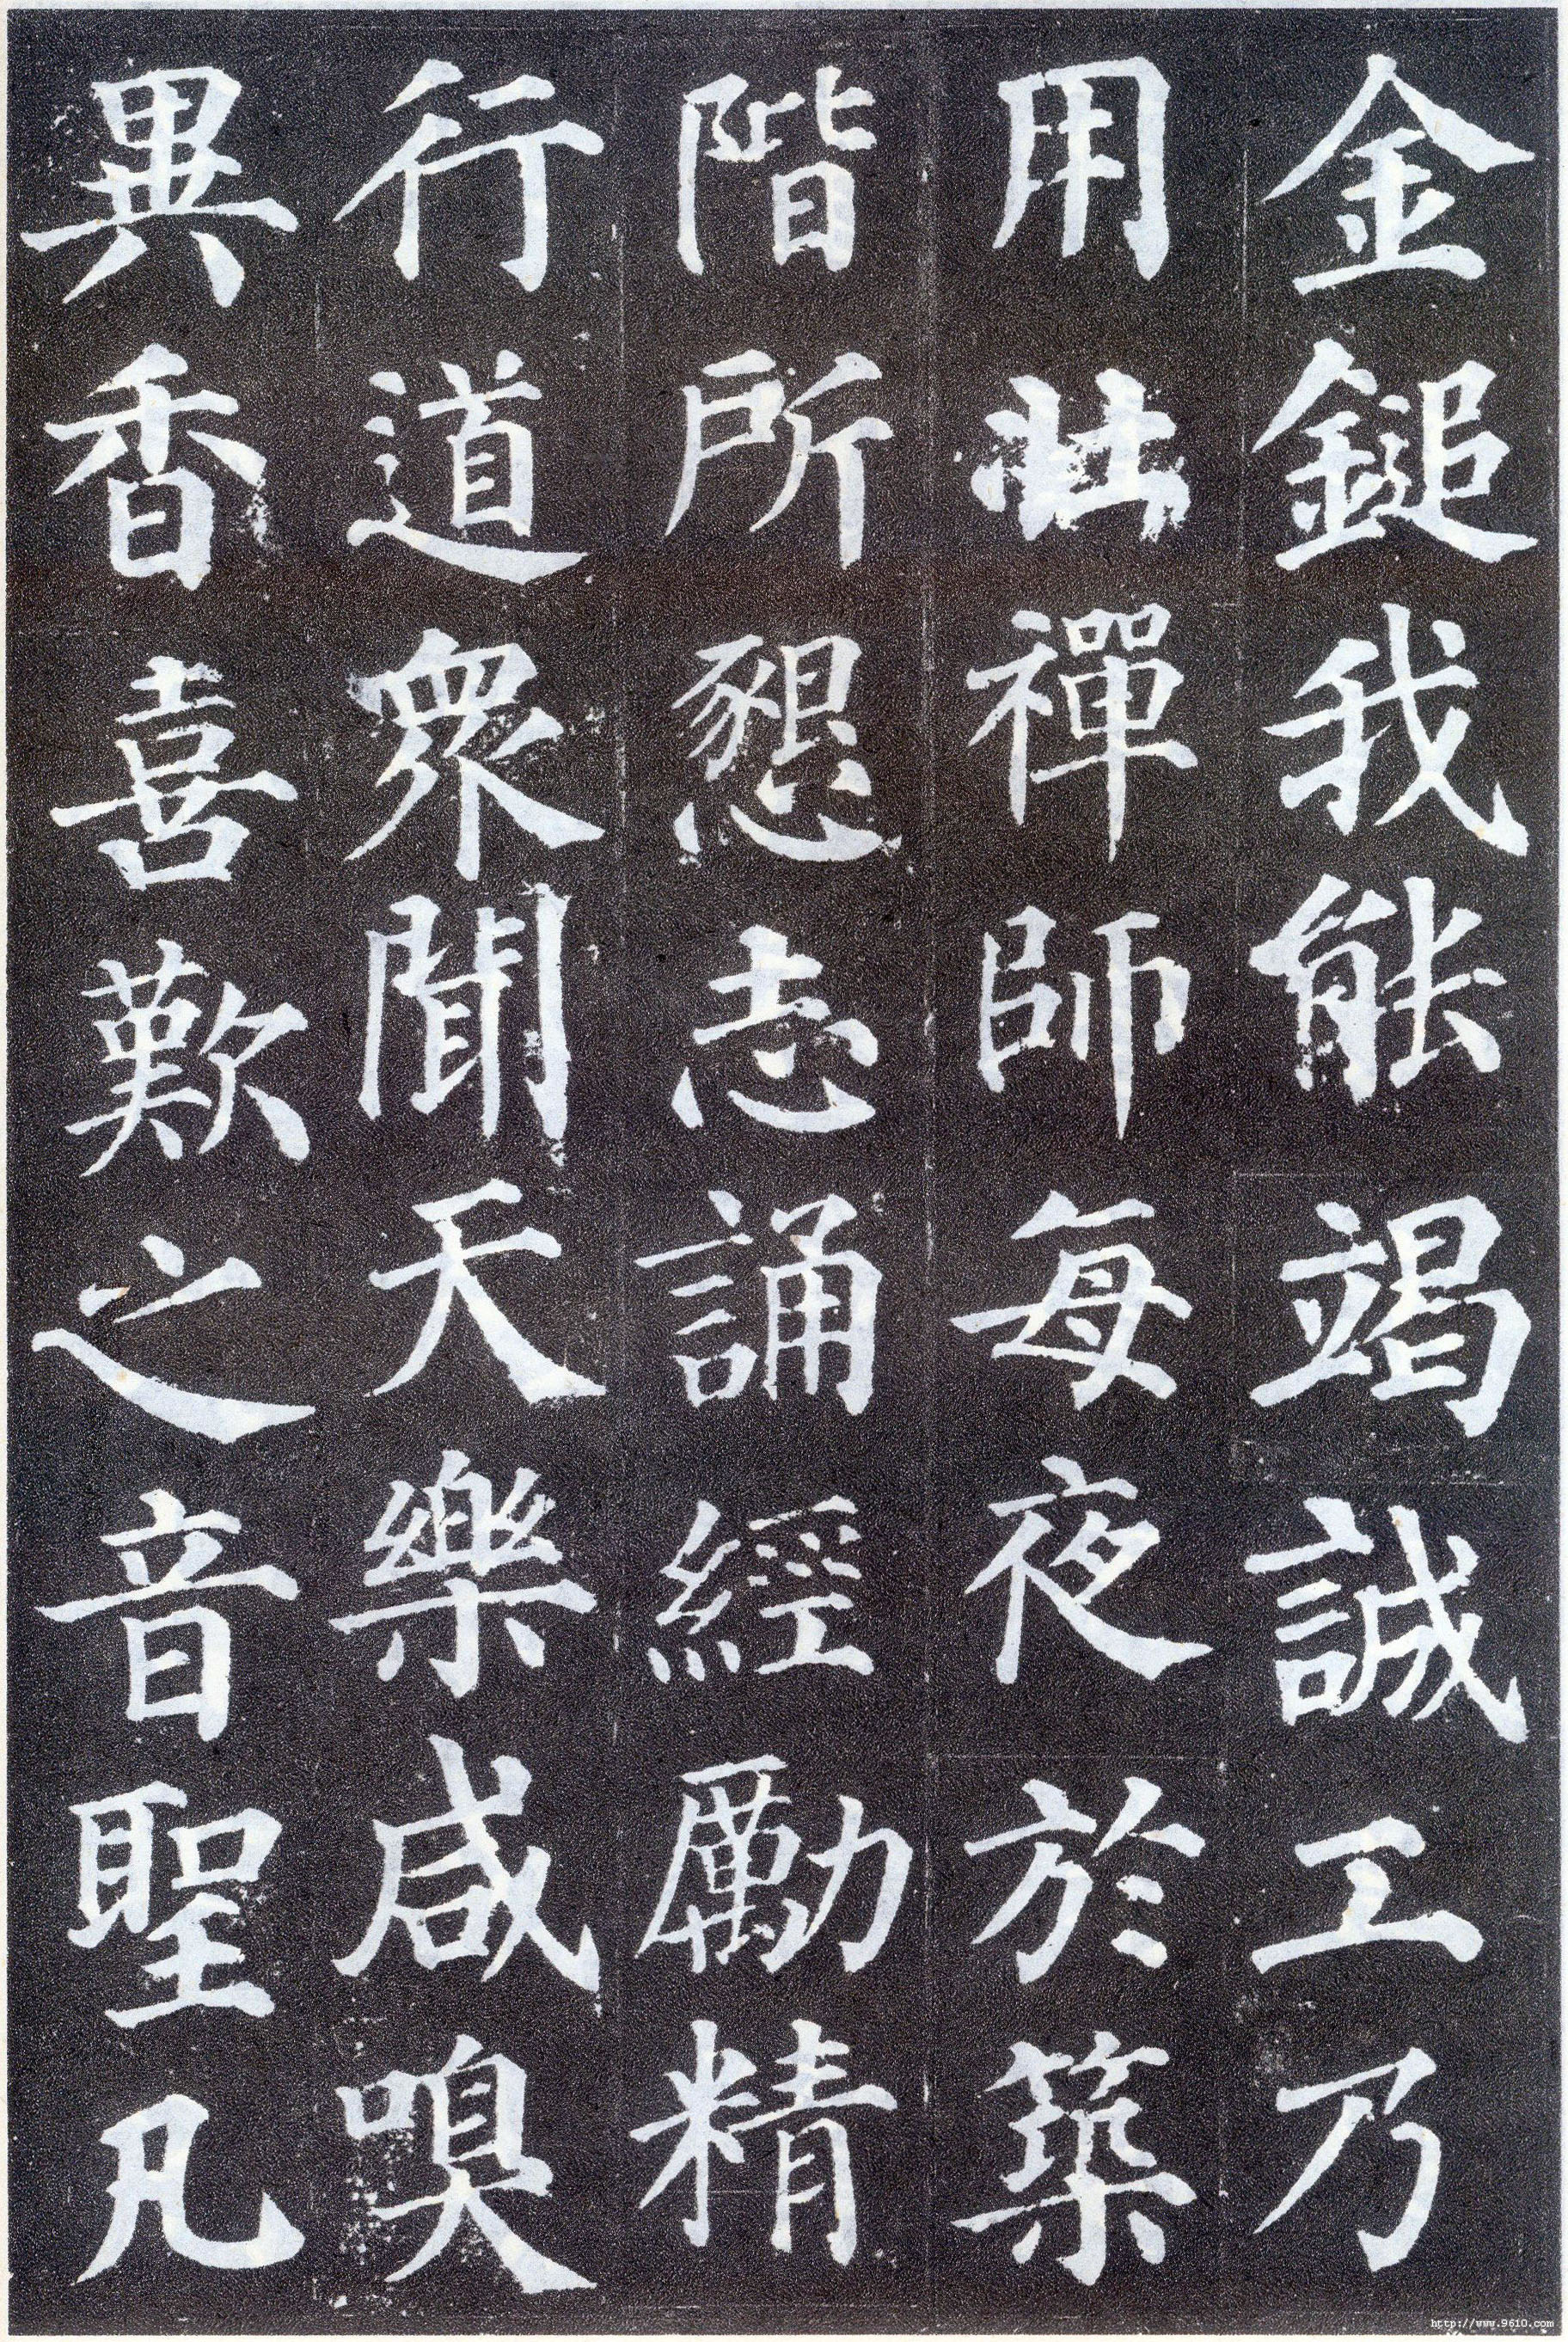 金鎚我能竭誠工乃
用壯禪師每夜於築
階所懇志誦經勵精
行道衆聞天樂咸嗅
異香喜歎之音聖凡
http://www.9610.com